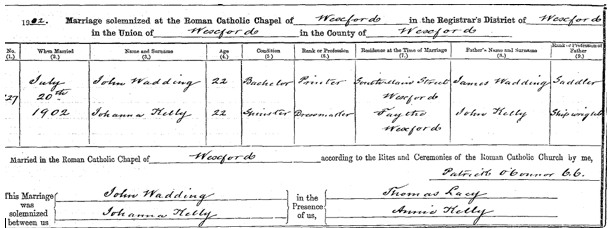 1902. Marriage solemnized at the Roman Catholic Chapel of Wexford in the Registrar's District of Wexford
in the Union of Wexford in the County of Wexford
No. (1.) When Married (2.) Name and Surname (3.) Age (4.) Condition (5) Rank or Profession (6.) Residence at the Time of Marriage (7.) Father's Name and Surname (8.) Rank or Profession of Father (9.)
July John Wadding 22 Bachelor Street James Wadding Saddler
27 20th Wexford
1902 Johanna Kelly 22 Spinster Dressmaker Faythe John Kelly Shipwright
Wexford
Married in the Roman Catholic Chapel of Wexford according to the Rites and Ceremonies of the Roman Catholic Church by me,
Patrick O'Connor C.C.
This Marriage was solemnized between us John Wadding in the Presence of us, Thomas Lacy
Johanna Kelly Annie Kelly